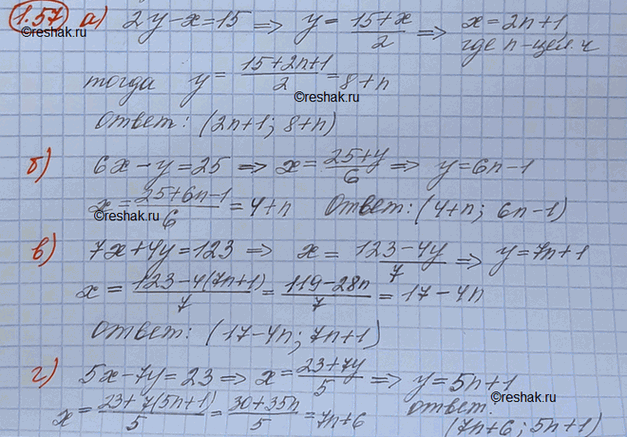 1.57 а) 2y-x=15 ⇒ y=(15+x)/2 ⇒ x=2n+1
©reshak.ru
где n-цел.ч
тогда y=(15+2n+1)/2=8+n
©reshak.ru
ответ: (2n+1; 8+n)
б) 6x-y=25 ⇒ x=(25+y)/6 ⇒ y=6n-1
x=(25+6n-1)/6=4+n Ответ: (4+n; 6n-1)
©reshak.ru
в) 7x+4y=123 ⇒ x=(123-4y)/7 ⇒ y=7n+1
x=(123-4(7n+1))/7=(119-28n)/7=17-4n
ответ: (17-4n; 7n+1)
г) 5x-7y=23 ⇒ x=(23+7y)/5 ⇒ y=5n+1
©reshak.ru
x=(23+7(5n+1))/5=(30+35n)/5=7n+6 ответ:
(7n+6; 5n+1)